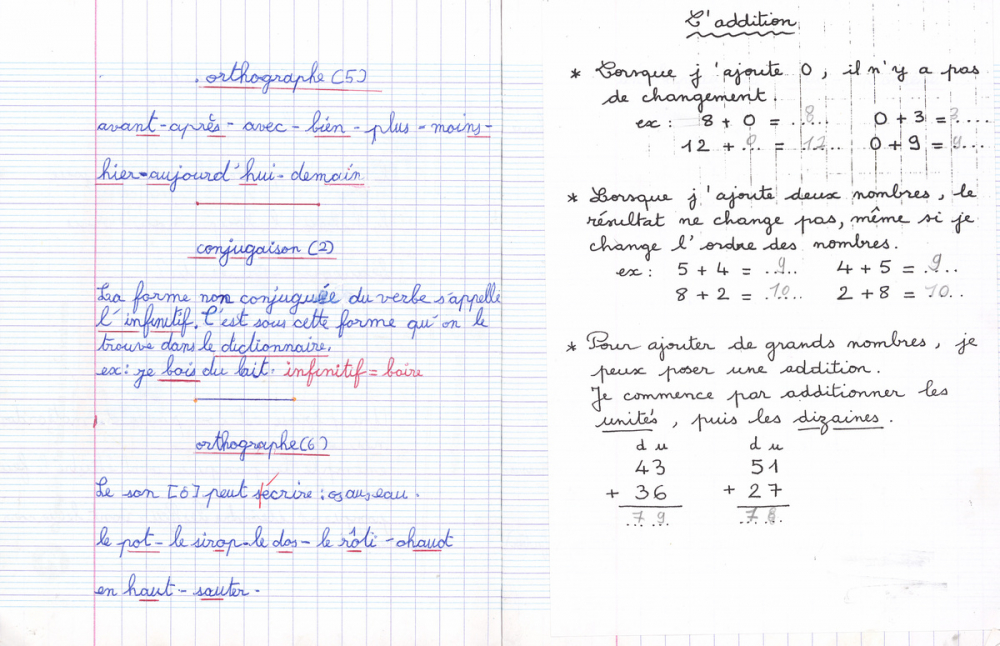 . orthographe (5)
avant - après - avec - bien - plus - moins -
hier - aujourd'hui - demain
conjugaison (2)
La forme non conjuguée du verbe s'appelle
l'infinitif. C'est sous cette forme qu'on le
trouve dans le dictionnaire.
ex: je bois du lait. infinitif = boire
orthographe (6)
Le son [o] peut s'écrire : o, au, eau.
le pot - le sirop - le dos - le rôti - chaud
en haut - sauter -
L'addition
* Lorsque j'ajoute 0, il n'y a pas
de changement.
ex : 8 + 0 = 8 0 + 3 = 3
12 + 0 = 12 0 + 9 = 9
* Lorsque j'ajoute deux nombres, le
résultat ne change pas, même si je
change l'ordre des nombres.
ex : 5 + 4 = 9 4 + 5 = 9
8 + 2 = 10 2 + 8 = 10
* Pour ajouter de grands nombres, je
peux poser une addition.
Je commence par additionner les
unités, puis les dizaines.
d u d u
43 51
+ 36 + 27
7 9 7 8